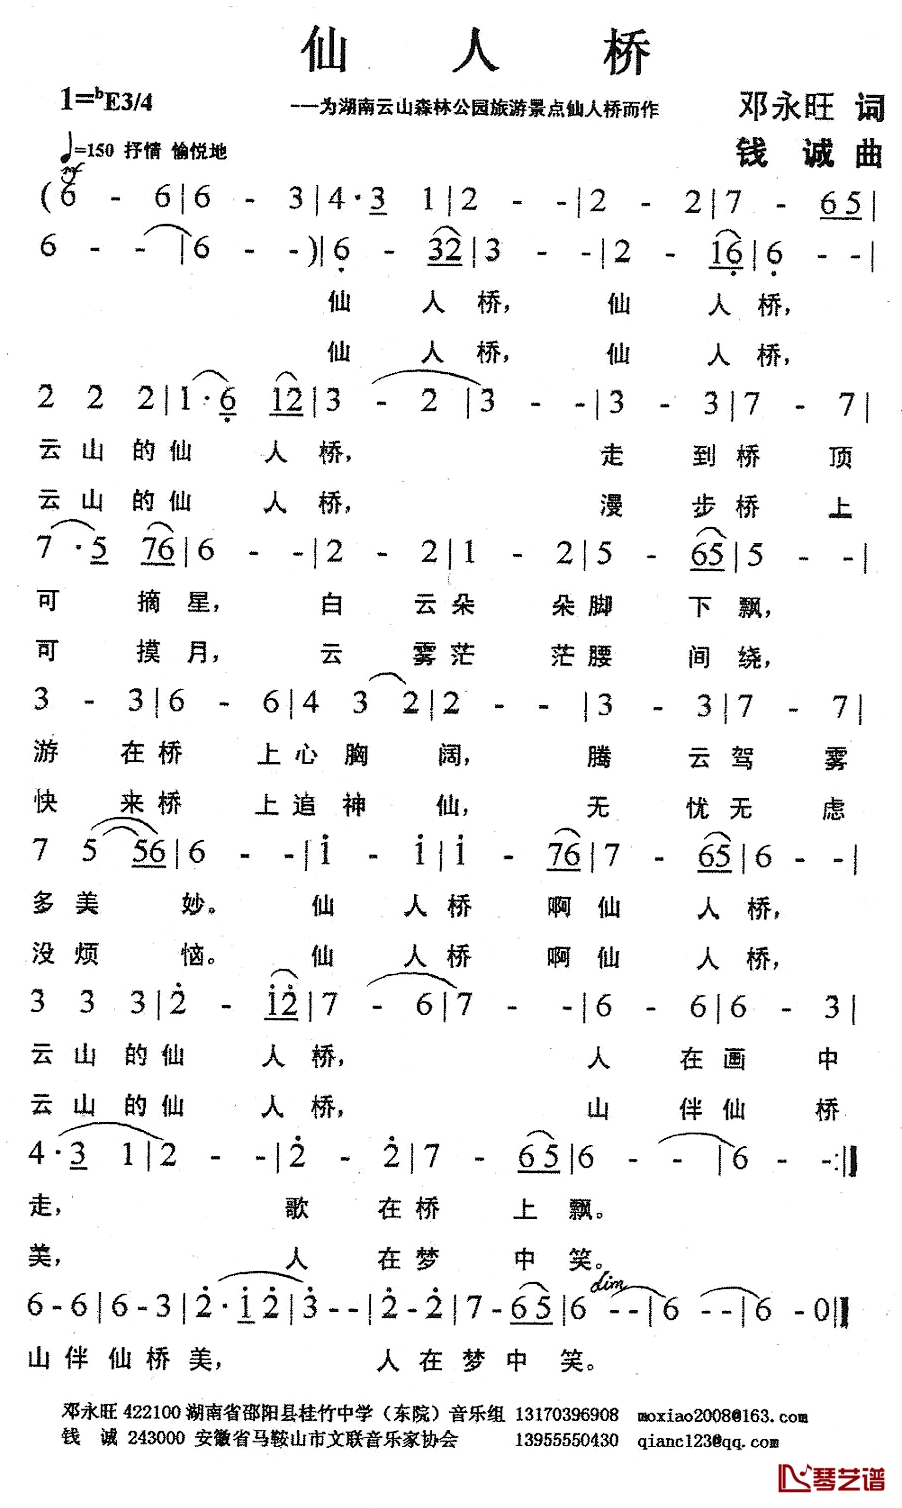 仙 人 桥
1=ᵇE3/4
---为湖南云山森林公园旅游景点仙人桥而作
邓永旺 词
♩=150 抒情 愉悦地
钱 诚 曲
mf
(6 - 6|6 - 3|4·3 1|2 - -|2 - 2|7 - 65|
6 - -|6 - -)|6̣ - 32|3 - -|2 - 16̣|6̣ - -|
仙 人 桥, 仙 人 桥,
仙 人 桥, 仙 人 桥,
2 2 2|1·6̣ 12|3 - 2|3 - -|3 - 3|7 - 7|
云 山 的 仙 人 桥, 走 到 桥 顶
云 山 的 仙 人 桥, 漫 步 桥 上
7·5 76|6 - -|2 - 2|1 - 2|5 - 65|5 - -|
可 摘 星, 白 云 朵 朵 脚 下 飘,
可 摸 月, 云 雾 茫 茫 腰 间 绕,
3 - 3|6 - 6|4 3 2|2 - -|3 - 3|7 - 7|
游 在 桥 上 心 胸 阔, 腾 云 驾 雾
快 来 桥 上 追 神 仙, 无 忧 无 虑
7 5 56|6 - -|1̇ - 1̇|1̇ - 76|7 - 65|6 - -|
多 美 妙。 仙 人 桥 啊 仙 人 桥,
没 烦 恼。 仙 人 桥 啊 仙 人 桥,
3 3 3|2̇ - 1̇2̇|7 - 6|7 - -|6 - 6|6 - 3|
云 山 的 仙 人 桥, 人 在 画 中
云 山 的 仙 人 桥, 山 伴 仙 桥
4·3 1|2 - -|2̇ - 2̇|7 - 65|6 - -|6 - -:‖
走, 歌 在 桥 上 飘。
美, 人 在 梦 中 笑。
dim
6-6|6-3|2̇·1̇2̇|3̇--|2̇-2̇|7-65|6--|6--|6-0‖
山 伴 仙 桥 美, 人 在 梦 中 笑。
邓永旺 422100 湖南省邵阳县桂竹中学（东院）音乐组 13170396908 moxiao2008@163.com
钱 诚 243000 安徽省马鞍山市文联音乐家协会 13955550430 qianc123@qq.com
琴艺谱